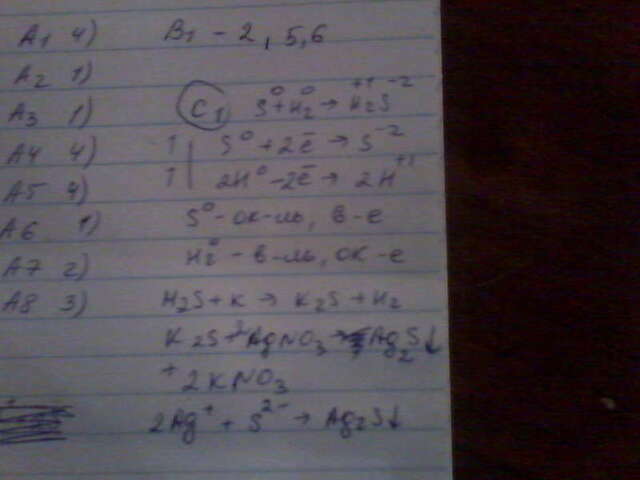 A1 4)
A2 1)
A3 1)
A4 4)
A5 4)
A6 1)
A7 2)
A8 3)
B1 - 2, 5, 6
C1) S⁰ + H₂⁰ → H₂⁺¹S⁻²
1 | S⁰ + 2ē → S⁻²
1 | 2H⁰ - 2ē → 2H⁺¹
S⁰ - ок-ль, в-е
H₂⁰ - в-ль, ок-е
H₂S + K → K₂S + H₂
K₂S + 2AgNO₃ → Ag₂S↓
+ 2KNO₃
2Ag⁺ + S²⁻ → Ag₂S↓